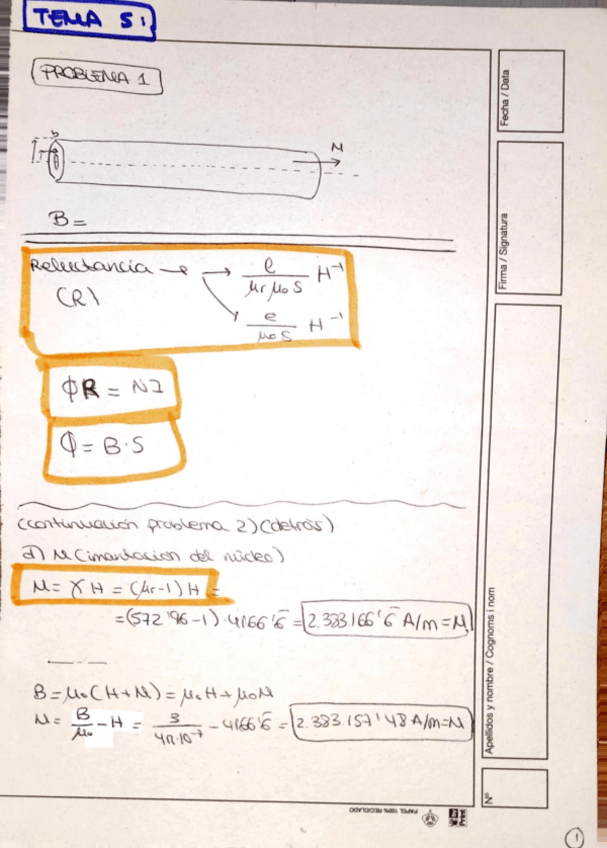 TEMA 5:
PROBLEMA 1
M
B =
Reluctancia → → l / μr μ0 S H⁻¹
(R)
e / μ0 S H⁻¹
ϕR = NI
ϕ = B·S
(continuación problema 2) (detrás)
d) M (imantacion del núcleo)
M = χ H = (μr-1) H =
= (572'96-1)·4166'6̄ = 2.383166'6̄ A/m = M
B = μ0 (H+M) = μ0 H + μ0 M
M = B / μ0 - H = 3 / 4π·10⁻⁷ - 4166'6̄ = 2.383.157'48 A/m = M
Fecha / Data
Firma / Signatura
Apellidos y nombre / Cognoms i nom
Nº
PAPEL 100% RECICLADO
1